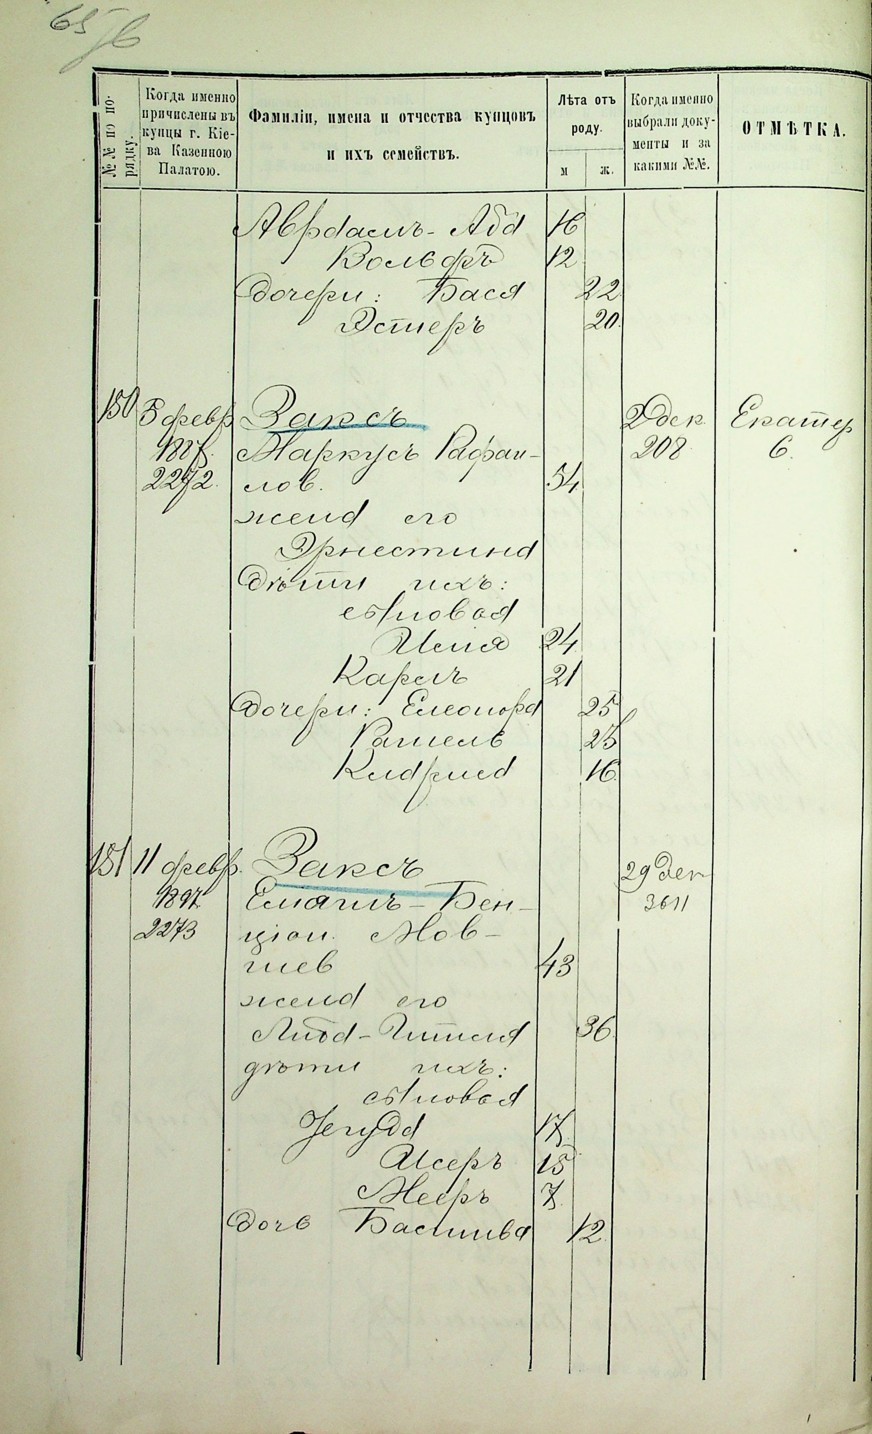 65
№№ по порядку.
Когда именно причислены въ купцы г. Кіева Казенною Палатою.
Фамиліи, имена и отчества купцовъ и ихъ семействъ.
Лѣта отъ роду.
м
ж.
Когда именно выбрали документы и за какими №№.
ОТМѢТКА.
Авраамъ-Аба 16
Вольфъ 12
Дочери: Бася 22
Эстеръ 20.
150 3 февр Заксъ 2 дек Екатер
Маркусъ Рафаи- 208 6
2272. лов. 54
жена его
Эрнестина
Дѣти ихъ:
сыновья
Илія 24
Карлъ 21
Дочери: Елеонора 25
Рашель 23
Клара 16
151 11 февр. Заксъ 29 дек
1897 Бен- 3611
2273 ціон. Мов-
шев 43
жена его
Либа-Гитля 36
дѣти ихъ:
сыновья
Іегуда 17
Исеръ 15
Мееръ 7
Дочь Басшива 12